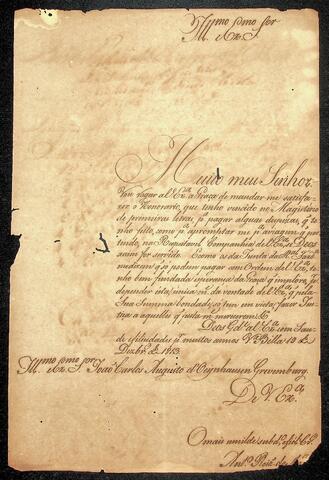 Ill.mo e Ex.mo Snr.
Muito meu Senhor.
Vou rogar a V. Ex.a a Graça de mandar me satisfa-
zer o Honorario, que tenho vencido no Magisterio
de primeiras letras p.a pagar algumas despezas, q' te-
nho feito, com o apromptar me p.a a viagem q' per-
tendo, na Respeitavel Companhia de V. Ex.a, Deos
assim for servido. Como os da Junta da
me podem pagar sem Ordem de V. Ex.a, te-
nho bem fundada esperança da Graça q' imploro, p.r
depender ella unica m.e da vontade de V. Ex.a, q' pela
Sua Summa bondade, só tem em vista fazer Jus-
tiça a aquelles q' justa m.e merecem. E
Deos G.de a V. Ex.a com Sau-
de e felicidades p.r muitos annos V.a Bella 10 de
Dezbr.o de 1813.
Ill.mo e Ex.mo Snr. João Carlos Augusto d'Oeynhausen Grevembourg.
De V. Ex.a
O mais umilde subd.o e fiel Cr.o
Ant.o